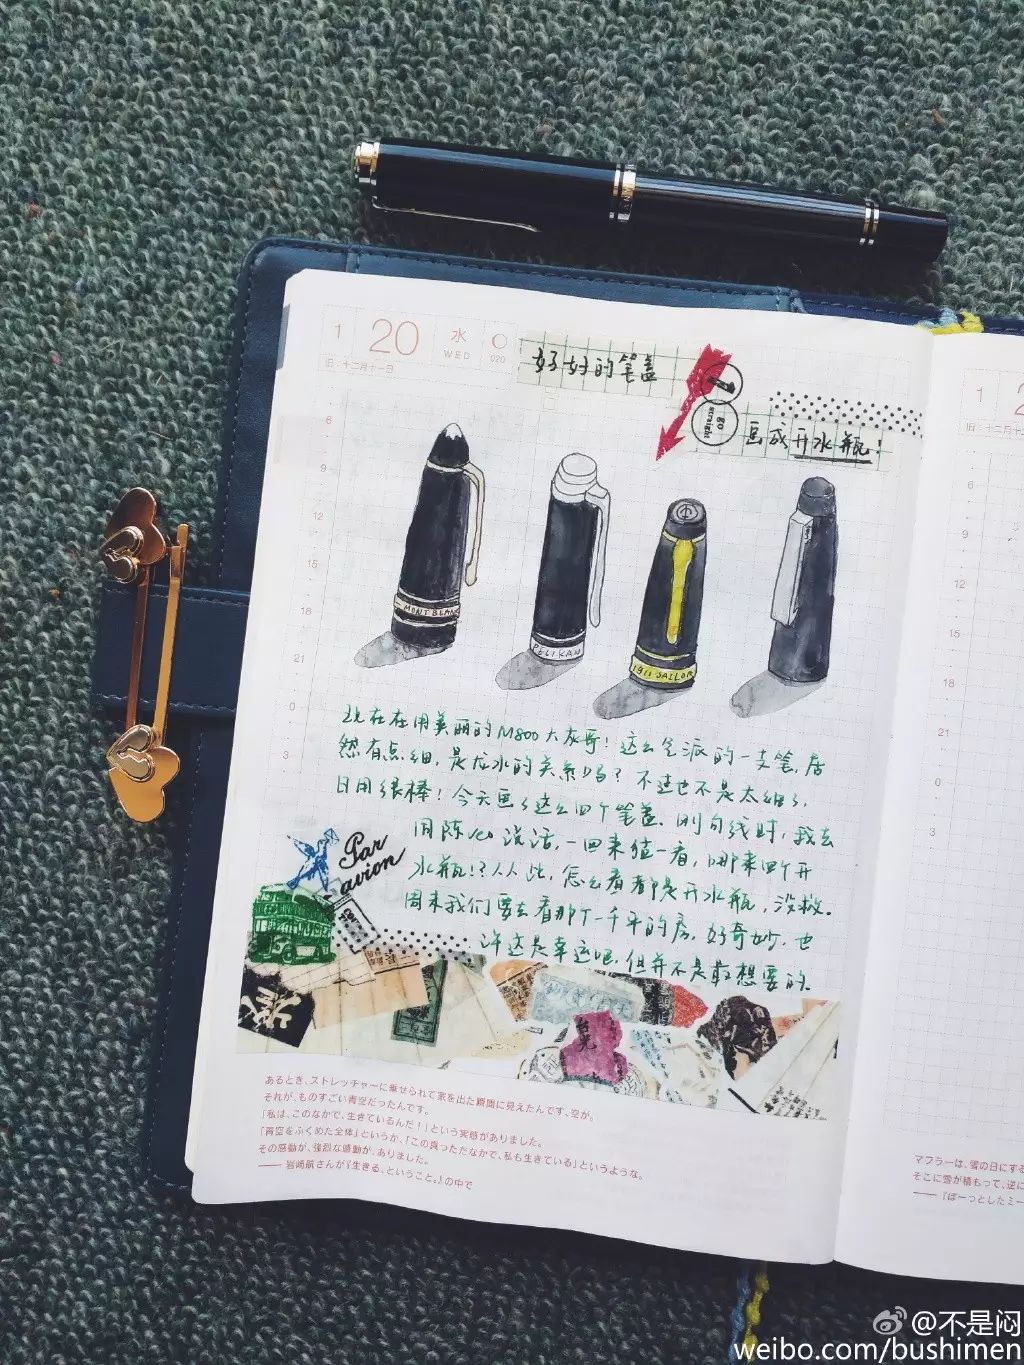 1
20
水
WED
020
旧・十二月十一日
好好的笔盖
go
straight
画成开水瓶!
6
9
12
15
18
21
0
3
MONTBLANC
PELIKAN
1911 SAILOR
现在在用美丽的M800大灰哥!这么气派的一支笔,居
然有点细,是龙水的关系吗?不过也不是太细了,
日用很棒!今天画了这么四个笔盖、刚勾线时,我去
同陈 说话,一回来猛一看,哪来四个开
水瓶!?从此,怎么看都是开水瓶,没救。
周末我们要去看那个一千平的房,好奇妙,也
许这是幸运吧,但并不是最想要的。
Par
avion
あるとき、ストレッチャーに乗せられて家を出た瞬間に見えたんです、空が。
それが、ものすごい青空だったんです。
「私は、このなかで、生きているんだ!」という実感がありました。
「青空をふくめた全体」というか、「この真っただなかで、私も生きている」というような。
その感動が、強烈な感動が、ありました。
── 岩崎航さんが『生きる、ということ。』の中で
1
旧・十二月十
6
9
12
15
18
21
0
3
マフラーは、雪の日にする
そこに雪が積もって、逆に
──『ぼーっとしたミー
@不是闷
weibo.com/bushimen